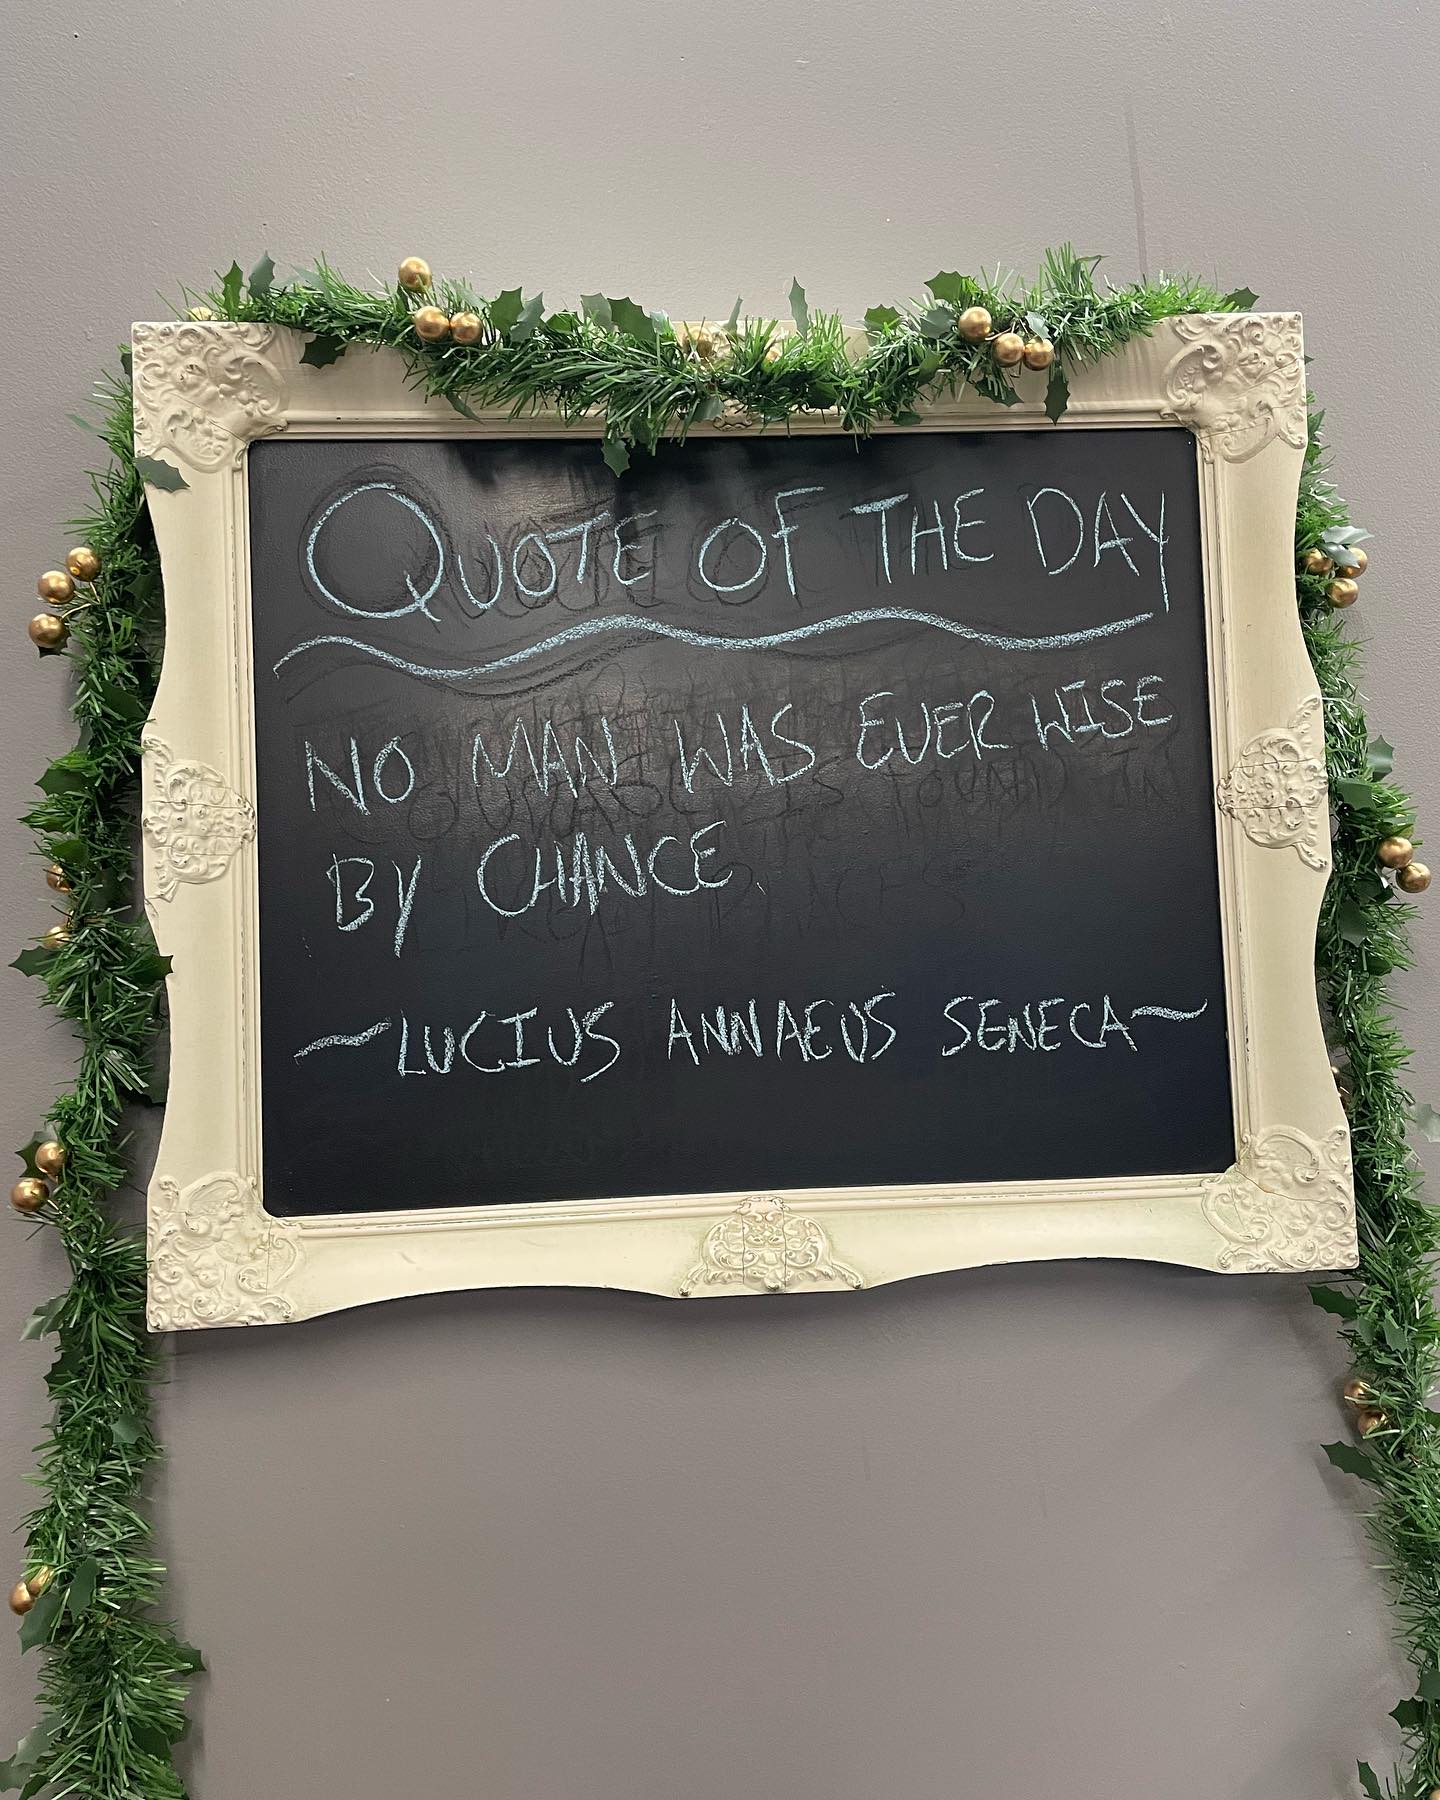 QUOTE OF THE DAY
NO MAN WAS EVER WISE
BY CHANCE.
~LUCIUS ANNAEUS SENECA~